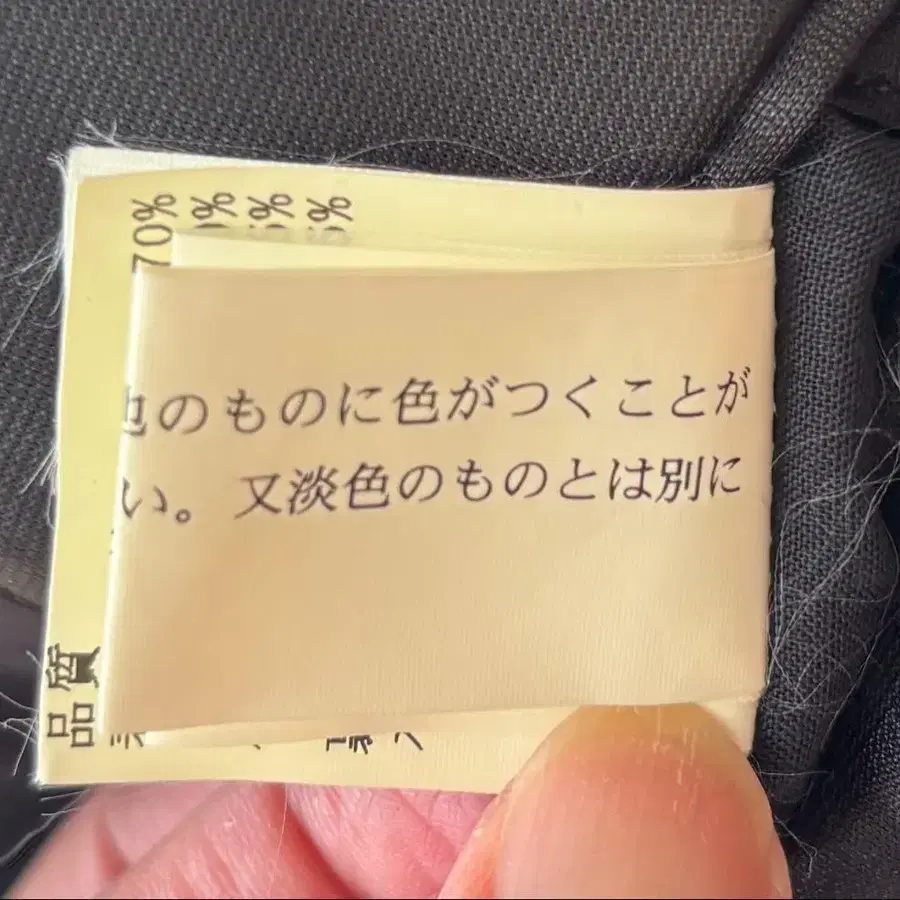 のものに色がつくことが
い。又淡色のものとは別に
70%
0%
5%
5%
品質